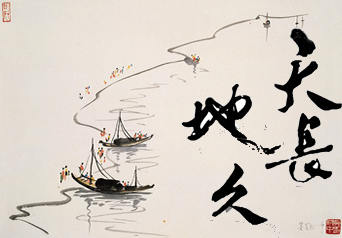 天長
地久